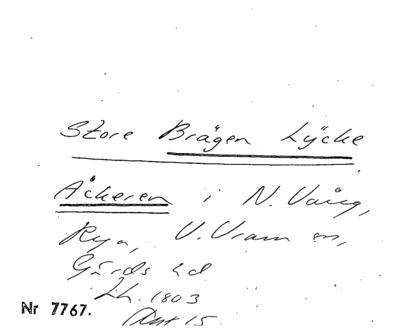 Store Brågen Lycke
Åckeren i N. Vång,
Rya, V. Vram sn,
Gärds hd
Lh. 1803
Akt 15
Nr 7767.